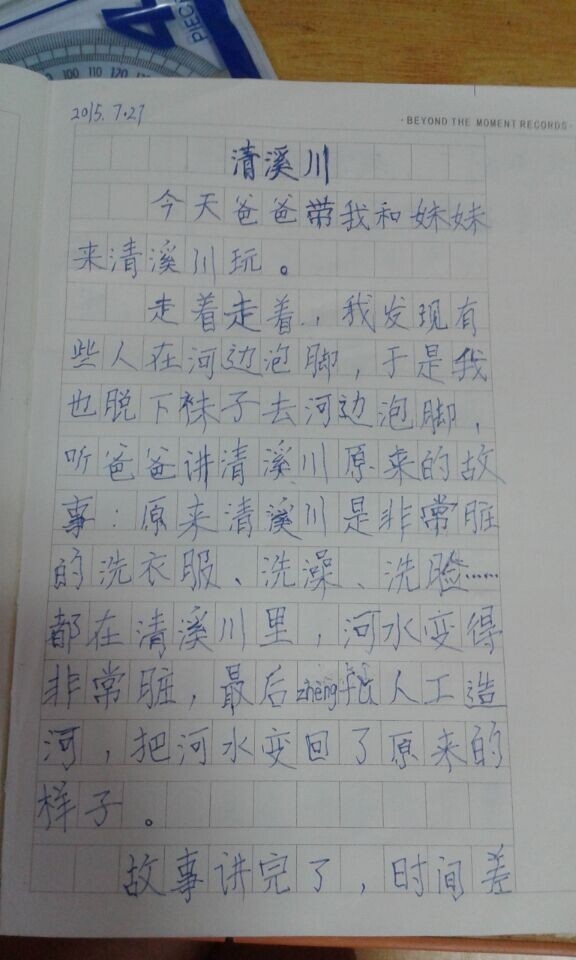 PEC
100 110 120
2015.7.27
·BEYOND THE MOMENT RECORDS·
清溪川
今天爸爸带我和妹妹
来清溪川玩。
走着走着，我发现有
些人在河边泡脚，于是我
也脱下袜子去河边泡脚，
听爸爸讲清溪川原来的故
事：原来清溪川是非常脏
的洗衣服、洗澡、洗脸……
都在清溪川里，河水变得
非常脏，最后zhèng人工造
河，把河水变回了原来的
样子。
故事讲完了，时间差